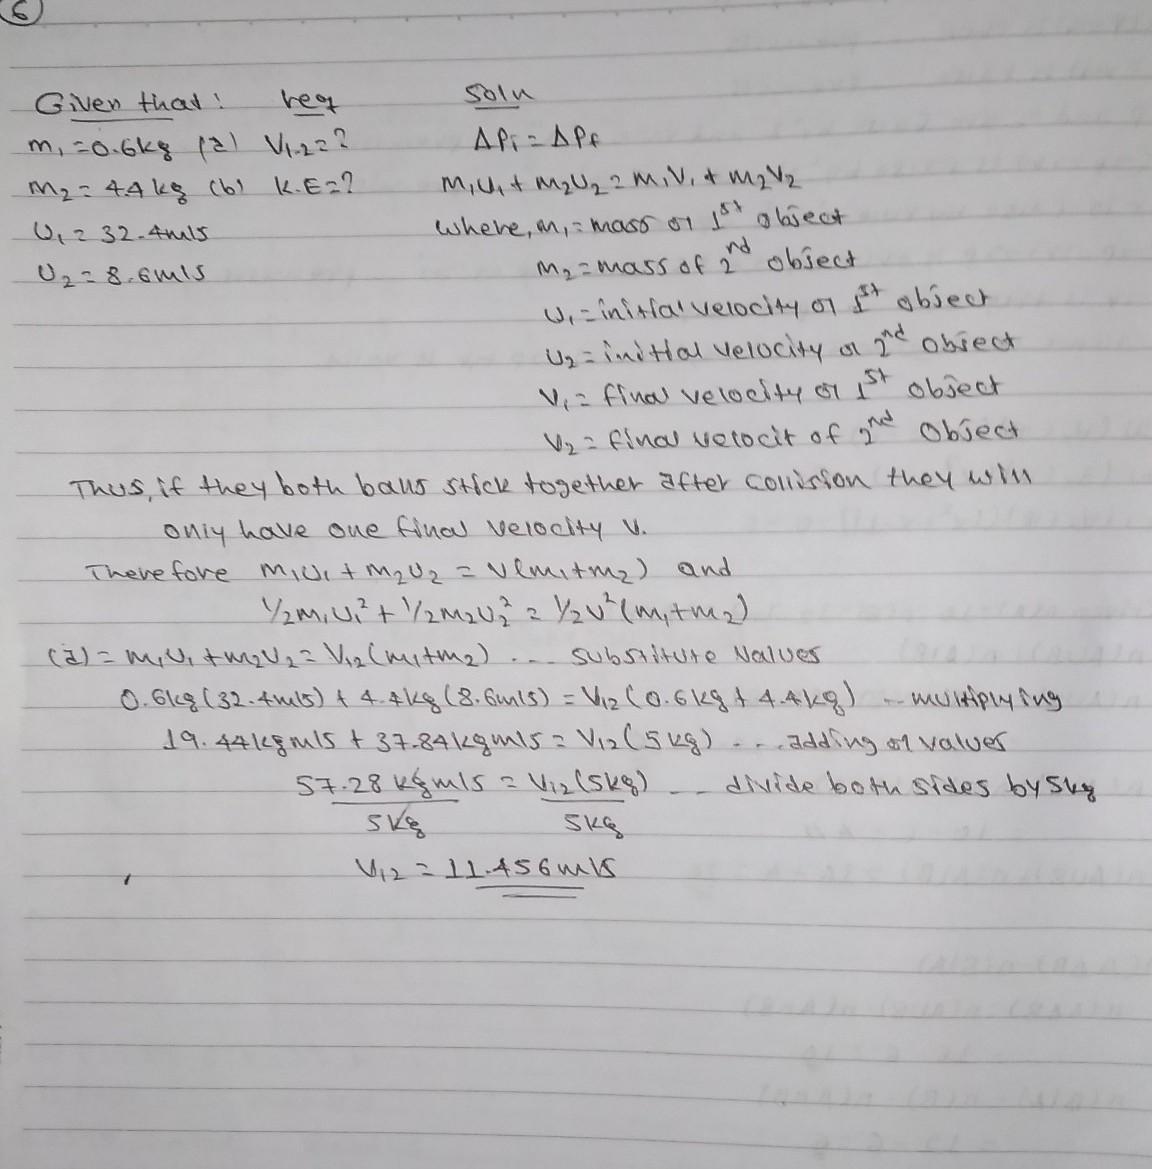 6
Given that: req soln
m₁=0.6kg (a) V₁.₂=? ΔPi = ΔPf
m₂ = 4.4 kg (b) K.E=? m₁u₁ + m₂u₂ = m₁v₁ + m₂v₂
U₁ = 32.4m/s where, m₁= mass of 1st object
U₂ = 8.6m/s m₂ = mass of 2nd object
u₁ = initial velocity of 1st object
u₂ = initial velocity of 2nd object
v₁ = final velocity of 1st object
v₂ = final velocit of 2nd object
Thus, if they both balls stick together after collision they will
only have one final velocity v.
Therefore m₁u₁ + m₂u₂ = v(m₁+m₂) and
½m₁u₁² + ½m₂u₂² = ½v²(m₁+m₂)
(a) = m₁u₁ + m₂u₂ = V₁₂(m₁+m₂) ... substitute values
0.6kg(32.4m/s) + 4.4kg(8.6m/s) = V₁₂(0.6kg + 4.4kg) -- multiplying
19.44kgm/s + 37.84kgm/s = V₁₂(5kg) ... adding of values
57.28 kgm/s = V₁₂(5kg) -- divide both sides by 5kg
5kg 5kg
V₁₂ = 11.456m/s